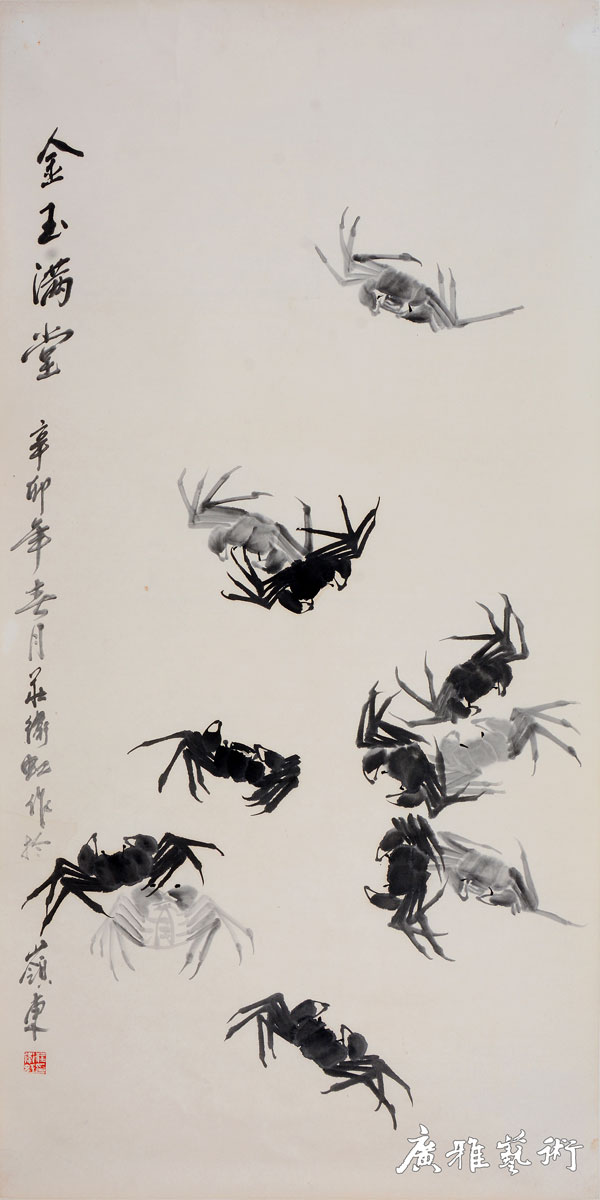 金玉满堂
辛卯年春月莊衛虹作於
嶺東
廣雅藝術